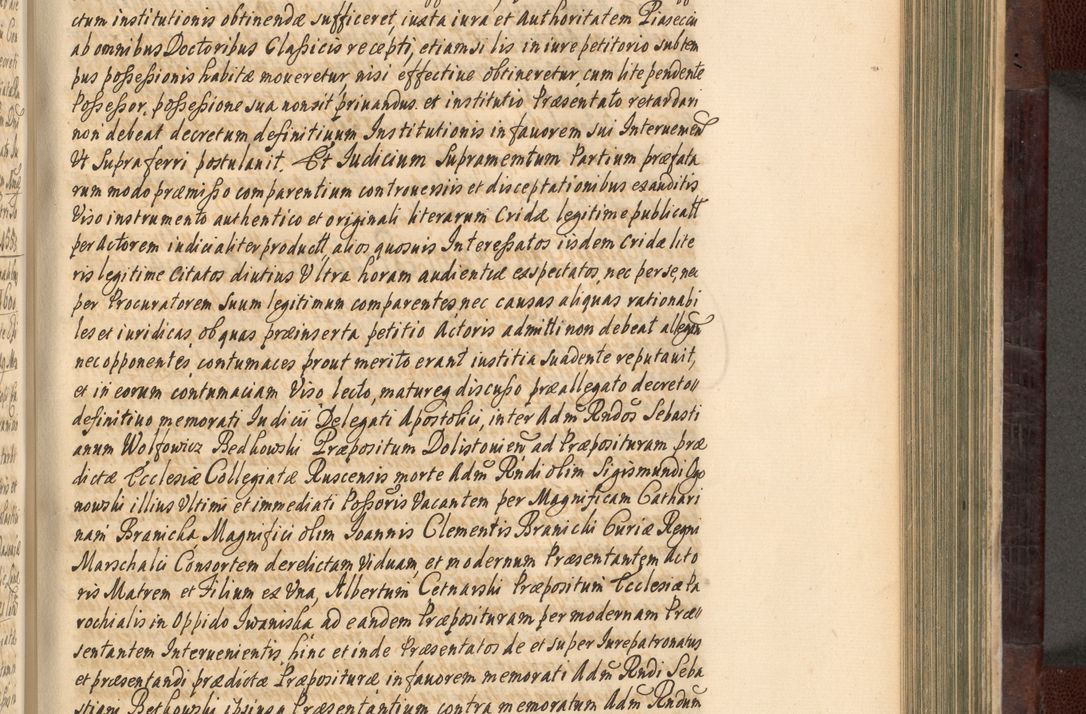 ctum institutionis obtinendæ sufficeret, iuxta iura et Authoritatem Piasecii
ab omnibus Doctoribus Classicis recepti, etiamsi lis in iure petitorio sub tem
pus possessionis habitæ moueretur, nisi effectiue obtineretur, cum lite pendente
Possessor, possessione sua non sit priuandus. et institutio Præsentato retardari
non debeat decretum definitiuum Institutionis in fauorem sui Interuenien
Vt Supra ferri postulauit. Et Iudicium Supramentum Partium præfata
rum modo præmisso comparentium controuersiis et disceptationibus exauditis
Viso instrumento authentico et originali literarum Cridæ legitime publicatt
per Actorem iudicialiter productt, alios quosuis Interessatos iisdem Cridæ lite
ris legitime Citatos diutius Ultra horam audientiæ exspectatos, nec per se, nec
per Procuratorem Suum legitimum comparentes, nec causas aliquas rationabi
les et iuridicas, ob quas præinserta petitio Actoris admitti non debeat allegan
nec opponentes, contumaces prout merito erant iustitia Suadente reputauit,
et in eorum contumaciam Viso lecto, matureq discusso præallegato decreto
definitiuo memorati Iudicii Delegati Apostolici, inter Adm Rndos Sebasti
anum Wolfowicz Bedkowski Præpositum Dolistouien ad Præposituram præ
dictæ Ecclesiæ Collegiatæ Ruscensis morte Adm Rndi olim Sigismundi
nowski illius Ultimi et immediati Possoris Vacantem per Magnificam Cathari
nam Branicka, Magnifici olim Joannis Clementis Branicki Curiæ Regni
Marschalci Consortem derelictam Viduam, et modernum Præsentantem Acto
ris Matrem et Filium ex Una, Albertum Cetnarski Præpositum Ecclesiæ Pa
rochialis in Oppido Iwaniska ad eandem Præposituram per modernam Præ
sentantem Interuenientis, hinc et inde Præsentatos de et super Iurepatronatus
et præsentandi prædictæ Præposituræ in fauorem memorati Adm Rndi Seba
stiani Betkowski ipsiusq Præsentantium contra memoratum Adm Rndum